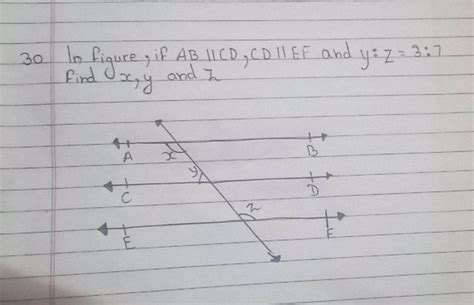 30 In figure, if AB || CD, CD || EF and y : z = 3 : 7
find x, y and z
A x B
y
C D
z
E F